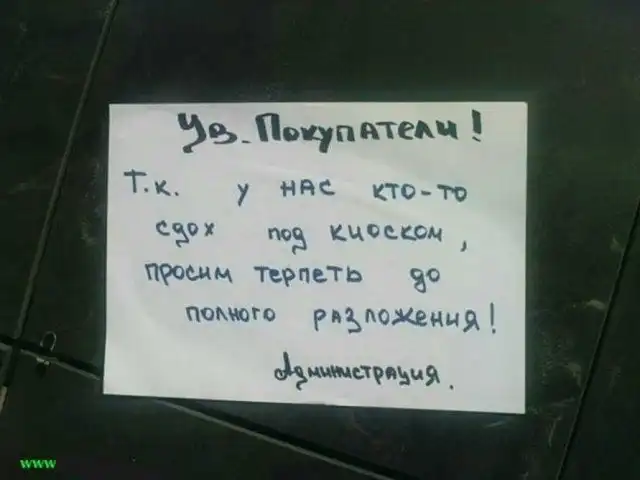 Ув. Покупатели!
Т.к. у нас кто-то
сдох под киоском,
просим терпеть до
полного разложения!
Администрация.
www